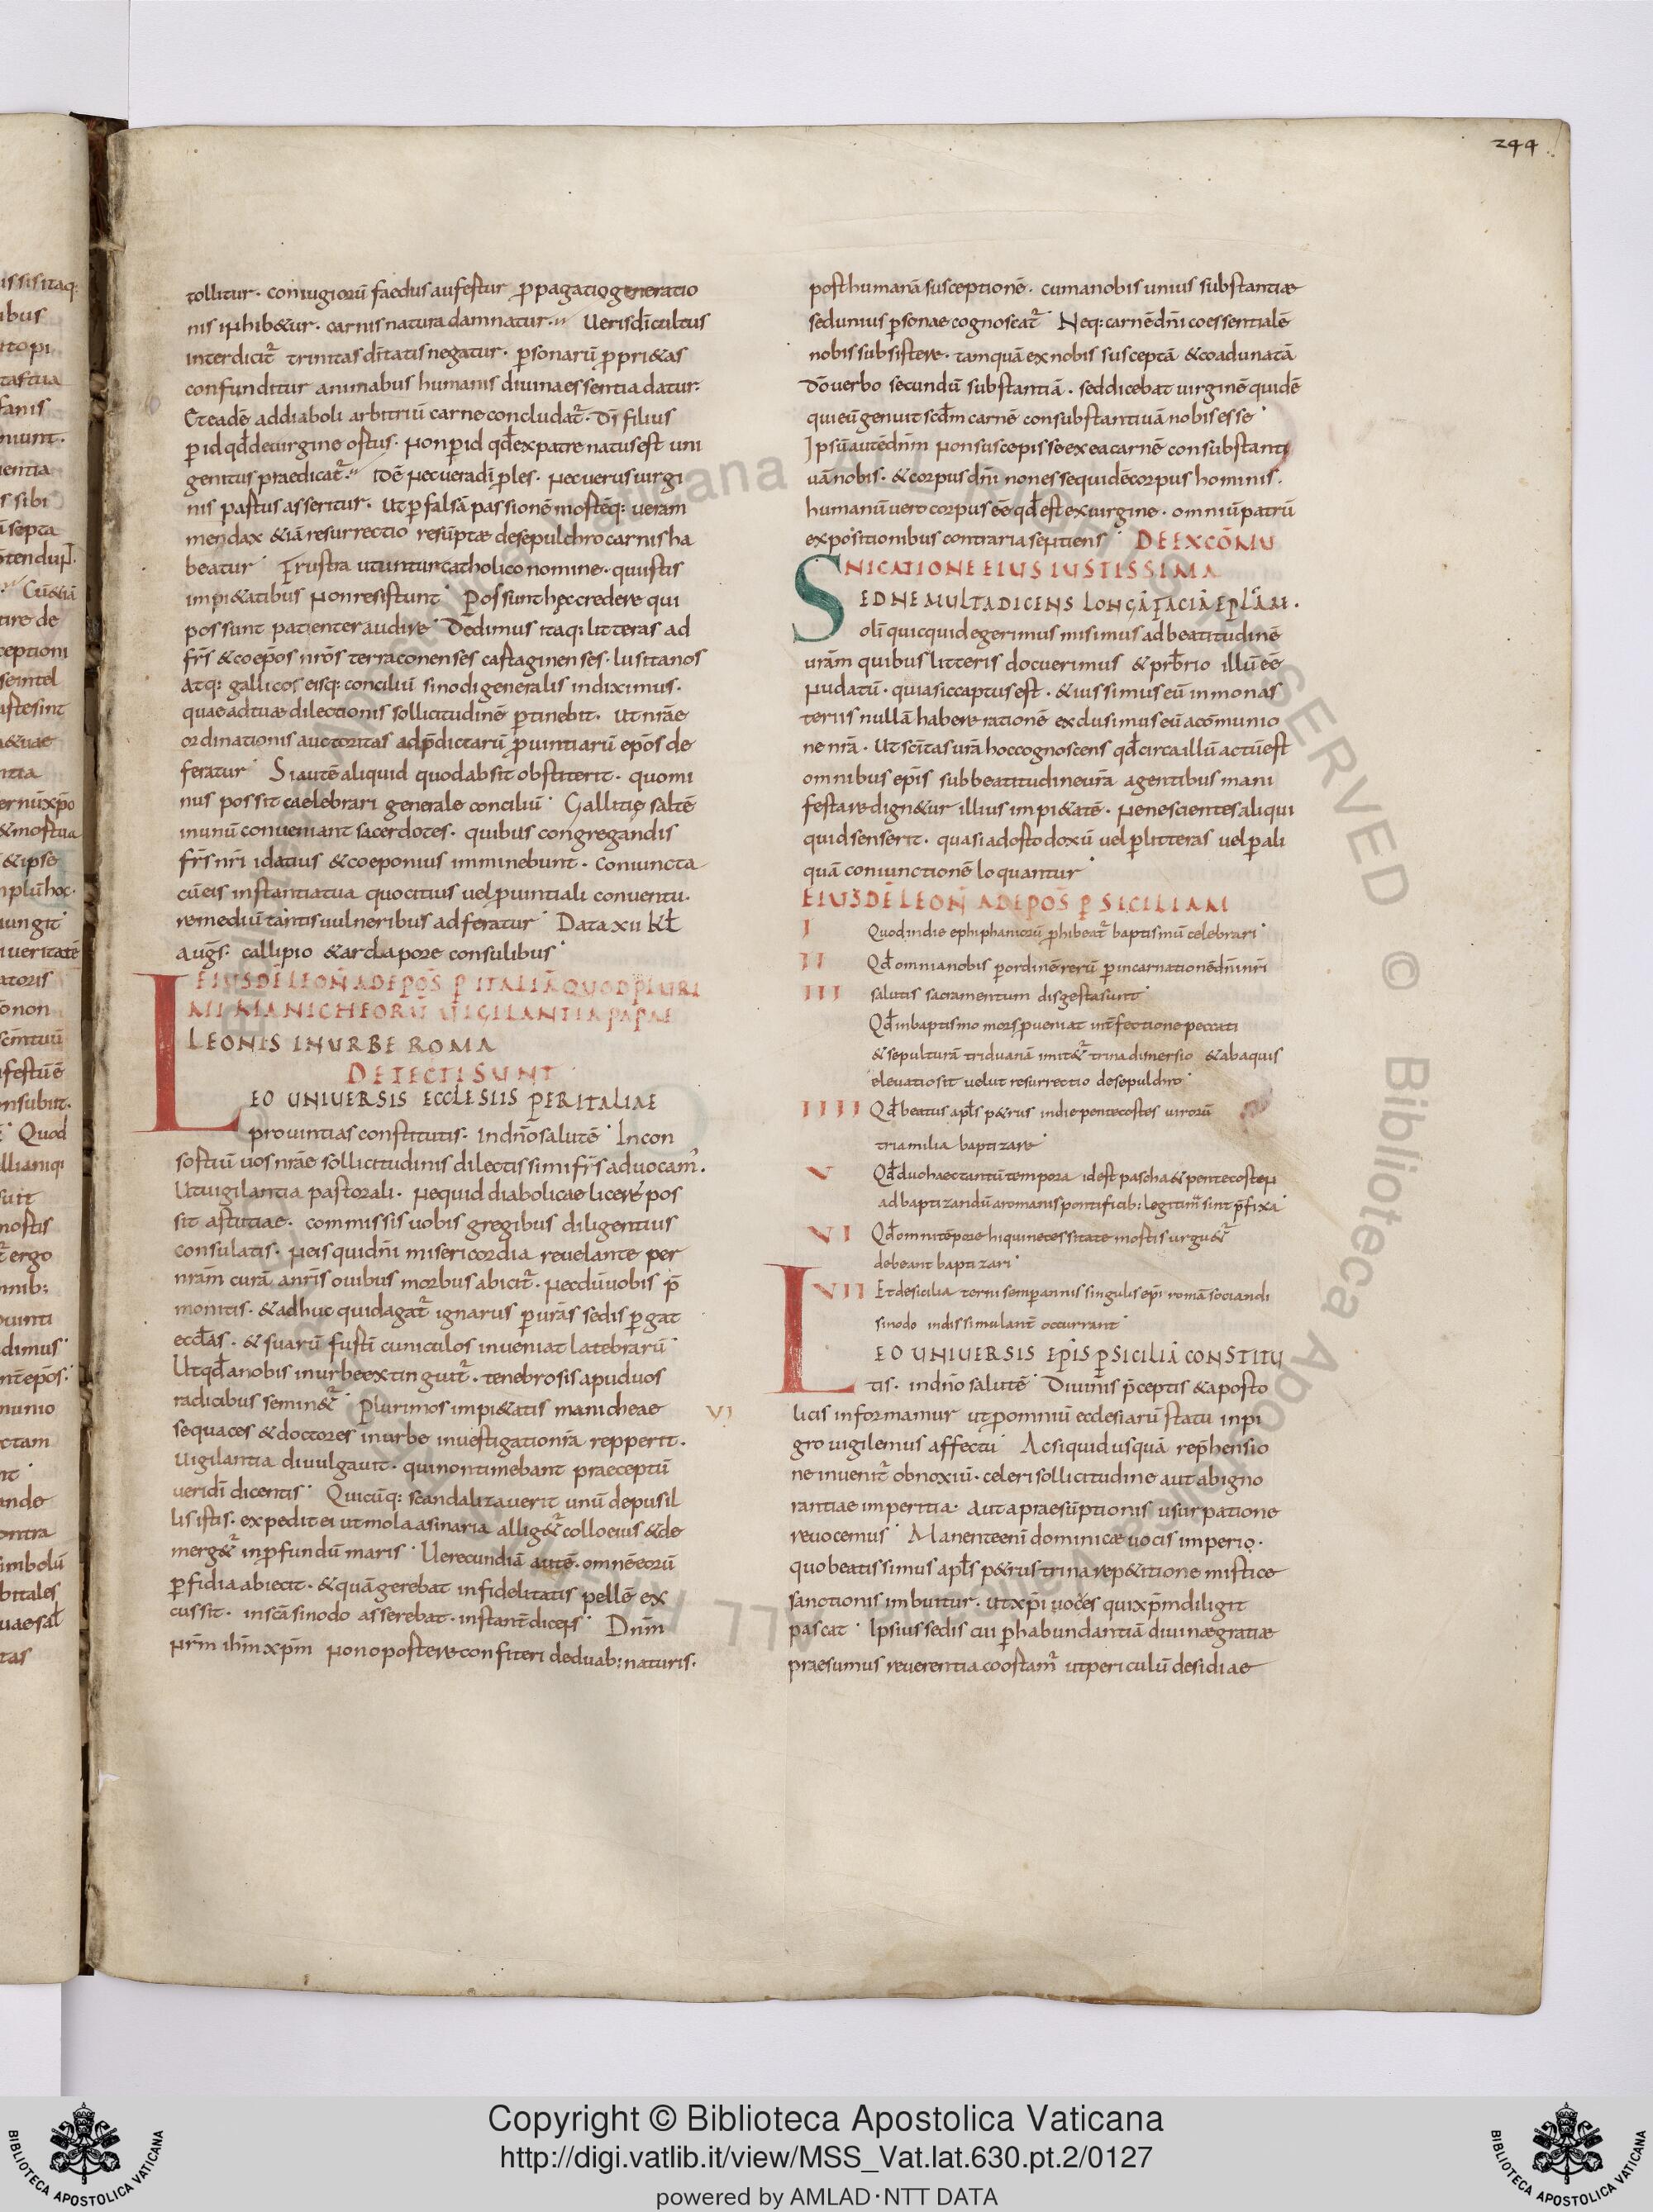 244
tollitur. coniugiorū faedus aufertur ꝓpagatio generatio
nis inhib&ur. carnis natura damnatur. Ueri sdī cultus
interdicit᷒ trinitas dītatis negatur. ꝑsonarū ꝓpri&as
confunditur animabus humanis diuina essentia datur.
Et eadē ad diaboli arbitriū carne concludat᷒. dī filius
ꝑ id qđ de uirgine ortus. non ꝑ id qđ ex patre natus est uni
genitus praedicat᷒. Idē nec uera dī ꝓles. nec uerus uirgi
nis partus asseritur. ut ꝑ falsā passionē mortēq: ueram
mendax &iā resurrectio resūptæ de sepulchro carnis ha
beatur Frustra utuntur catholico nomine. qui istis
impi&atibus non resistunt Possunt hęc credere qui
possunt patienter audire Dedimus itaq: litteras ad
fr̄s & coep̄os nr̄os terraconenses cartaginenses. lusitanos
atq: gallicos eisq: conciliū sinodi generalis indiximus.
quae ad tuæ dilectionis sollicitudinē ꝑtinebit. ut nr̄ae
ordinationis auctoritas ad p̄dictarū ꝓuintiarū ep̄os de
feratur Si autē aliquid quod absit obstiterit. quomi
nus possit caelebrari generale conciliū Gallitię saltē
in unū conueniant sacerdotes. quibus congregandis
fr̄s nr̄i idatius & coeponius imminebunt. coniuncta
cū eis instantia tua quo citius uel ꝓuintiali conuentu.
remediū tantis uulneribus adferatur Data xii kł
augs̄. callipio & ardapore consulibus
EIUSDĒ LEON̄ AD EPŌS ꝑ ITALIĀ QUOD PLURI
MI MANICHEORŪ UIGILANTIA PAPAE
LEONIS IN URBE ROMA
DETECTI SUNT
LEO UNIUERSIS ECCLESIIS PER ITALIAE
prouintias constitutis. in dn̄o salutē In con
sortiū uos nr̄ae sollicitudinis dilectissimi fr̄s aduocam᷒.
Ut uigilantia pastorali. ne quid diabolicae licere pos
sit astutiae. commissis uobis gregibus diligentius
consulatis. ne is qui dn̄i misericordia reuelante per
nr̄am curā a nr̄is ouibus morbus abicit᷒. nec dū uobis p̄
monitis. & adhuc quid agat᷒ ignarus ꝑ ur̄as sedis ꝑgat
ecclas̄. & suarū furtī cuniculos inueniat latebrarū
Ut qđ a nobis in urbe extinguit᷒. tenebrosis apud uos
radicibus semin&᷒ Plurimos impi&atis manicheae VI
sequaces & doctores in urbe inuestigatio nr̄a repperit.
uigilantia diuulgauit. qui non timebant praeceptū
ueri dī dicentis Quicūq: scandalizauerit unū de pusil
lis istis. expedit ei ut mola asinaria allig&᷒ collo eius & de
merg&᷒ in ꝓfundū maris Uerecundiā autē. omnē eorū
ꝑfidia abiecit. & quā gerebat infidelitatis pellē ex
cussit. in sc̄a sinodo asserebat. instant̄ dicens Dn̄m
nr̄m ihm̄ xp̄m non oportere confiteri de duab: naturis.
post humanā susceptionē. cum a nobis unius substantiæ
sed unius ꝑsonae cognoscat᷒ Neq: carnē dn̄i coessentialē
nobis subsistere. tamquā ex nobis susceptā & coadunatā
dō uerbo secundū substantiā. sed dicebat uirginē quidē
qui eū genuit scdm̄ carnē consubstantiuā nobis esse
Ipsū autē dn̄m non suscepisse ex ea carnē consubstanti
uā nobis. & corpus dn̄i non esse quidē corpus hominis.
humanū uero corpus eē qđ est ex uirgine. omniū patrū
expositionibus contraria sentiens DE EXCŌMU
NICATIONE EIUS IUSTISSIMA
SED NE MULTA DICENS LONGĀ FACIĀ EPLĀM.
olī quicquid egerimus misimus ad beatitudinē
ur̄am quibus litteris docuerimus & prb̄rio illū eē
nudatū. quia sic captus est. & iussimus eū in monas
teriis nullā habere rationē exclusimus eū a cōmunio
ne nr̄a. Ut scītas ur̄a hoc cognoscens qđ circa illū actū est
omnibus ep̄is sub beatitudine ur̄a agentibus mani
festare dign&ur illius impi&atē. ne nescientes aliqui
quid senserit. quasi ad ortodoxū uel ꝑ litteras uel ꝑ ali
quā coniunctionē loquantur
EIUSDĒ LEON̄ AD EPŌS ꝑ SICILIAM
I Quod in die ephiphaniorū ꝓhibeat᷒ baptismū celebrari
II Qđ omnia nobis ꝑ ordinē rerū ꝑ incarnationē dn̄i nr̄i
III salutis sacramentum digesta sunt
Qđ in baptismo mors ꝓueniat int̄fectione peccati
& sepulturā triduanā imit&᷒ trina dimersio & ab aquis
eleuatio sit uelut resurrectio de sepulchro
IIII Qđ beatus apłs p&rus in die pentecostes uirorū
tria milia baptizare
V Qđ duo haec tantū tempora id est pascha & pentecosten
ad baptizandū a romanis pontificib: legitim̄ sint p̄fixa
VI Qđ omni tēpore hi qui necessitate mortis urgu&᷒
debeant baptizari
VII Et de sicilia terni semꝑ annis singulis ep̄i romā sociandi
sinodo indissimulant̄ occurrant
LEO UNIUERSIS EP̄IS ꝑ SICILIĀ CONSTITU
tis. in dn̄o salutē Diuinis p̄ceptis & aposto
licis informamur ut ꝓ omniū ecclesiarū statu inpi
gro uigilemus affectu Ac si quid usquā rep̄hensio
ne inuenit᷒ obnoxiū. celeri sollicitudine aut ab igno
rantiae imperitia. aut a praesūptionis usurpatione
reuocemus Manente enī dominicæ uocis imperio.
quo beatissimus apłs p&rus trina rep&itione mistice
sanctionis imbuitur. ut xp̄i uoces qui xp̄m diligit
pascat Ipsius sedis cui ꝑ habundantiā diuinæ gratiæ
praesumus reuerentia coortam᷒ ut periculū desidiae
Copyright © Biblioteca Apostolica Vaticana
http://digi.vatlib.it/view/MSS_Vat.lat.630.pt.2/0127
powered by AMLAD·NTT DATA
BIBLIOTECA APOSTOLICA VATICANA
BIBLIOTECA APOSTOLICA VATICANA